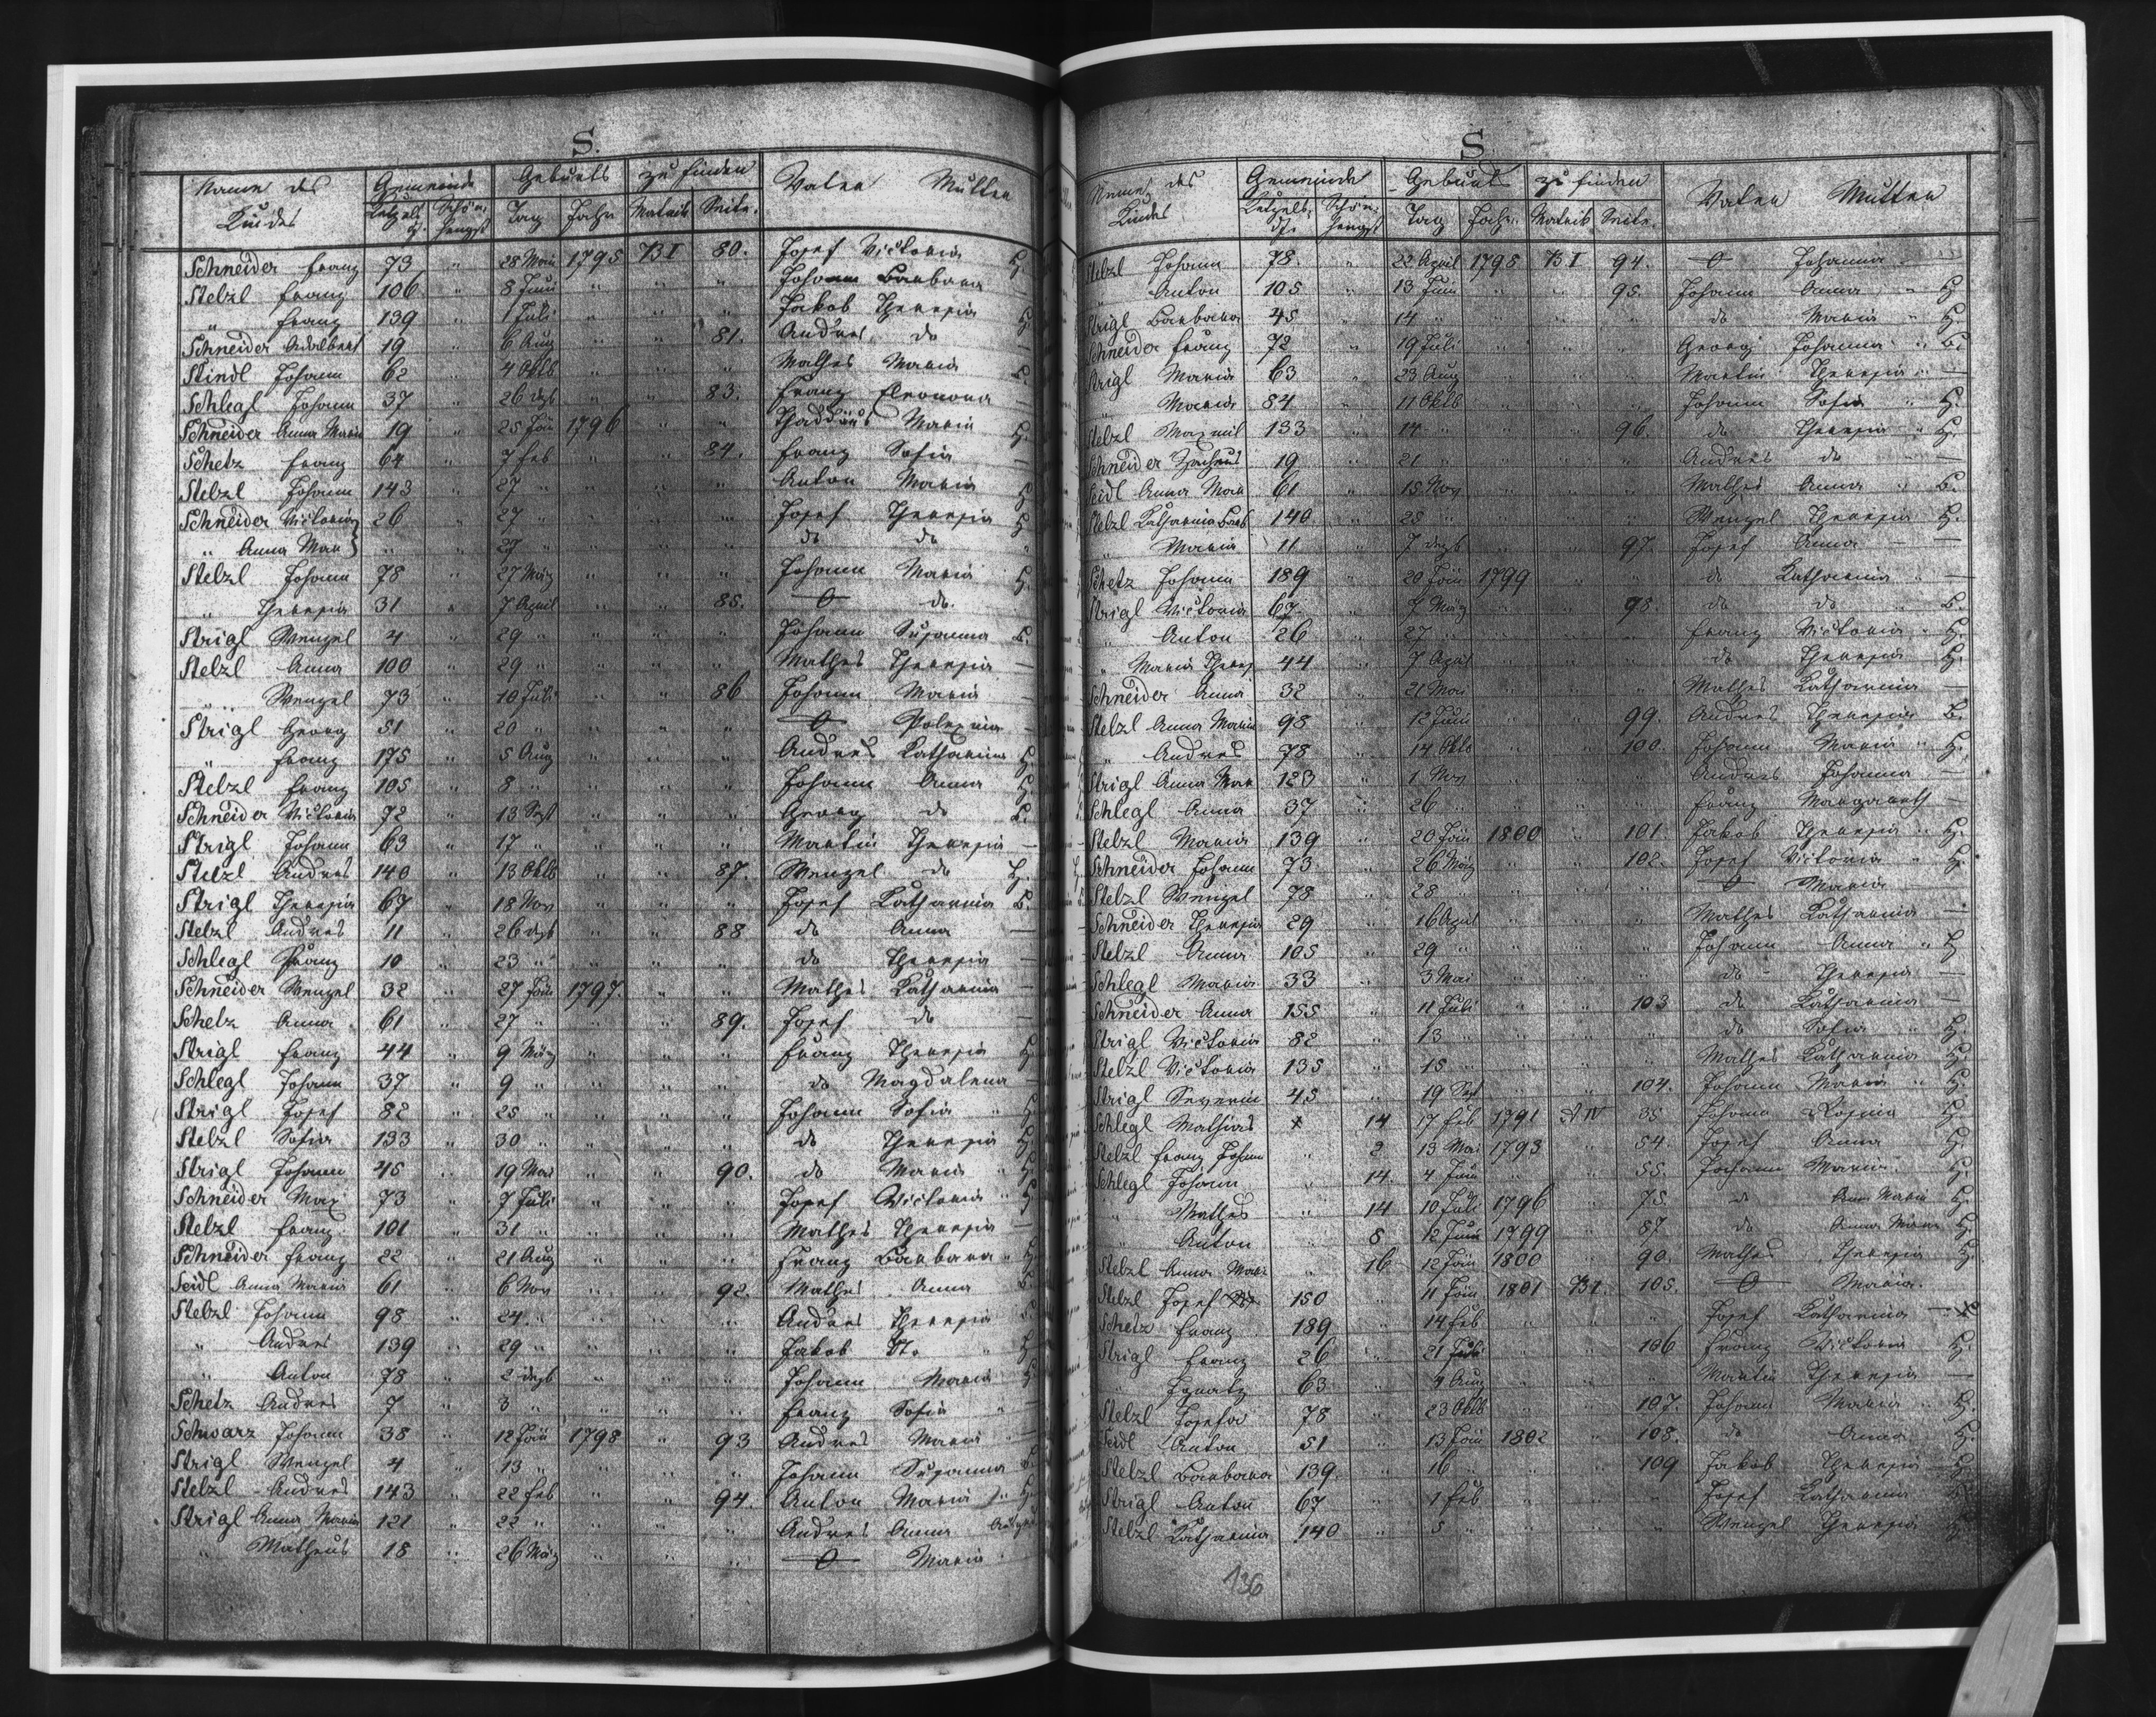 S.
Name des Kindes Gemeinde Geburts zu finden Vater Mutter
Ketzelsd. Schönhengst Tag Jahr Matrik Seite.
Schneider Franz 73 " 28 Mai 1795 B I 80. Josef Victoria H.
Stelzl Franz 106 " 8 Juni " " " Johann Barbara
" Franz 139 " 1 Juli " " " Jakob Theresia H.
Schneider Adalbert 19 " 6 Aug " " 81. Andres do
Stindl Johann 62 " 4 Oktb " " " Mathes Maria B.
Schlegl Johann 37 " 26 dezb " " 83. Franz Eleonora —
Schneider Anna Maria 19 " 25 Jän 1796 " " Thaddäus Maria H.
Schetz Franz 64 " 7 Feb " " 84. Franz Sofia —
Stelzl Johann 143 " 27 " " " " Anton Maria H.
Schneider Victoria 26 " 27 " " " " Josef Theresia H
" Anna Mar " " 27 " " " " do do "
Stelzl Johann 78 " 27 März " " " Johann Maria H.
" Theresia 31 " 7 April " " 85. O do.
Strigl Wenzel 4 " 29 " " " " Johann Susanna B.
Stelzl Anna 100 " 29 " " " " Mathes Theresia —
" Wenzel 73 " 10 Juli " " 86 Johann Maria —
Strigl Georg 51 " 20 " " " " O Polexina —
" Franz 175 " 5 Aug " " " Andres Katharina H
Stelzl Franz 105 " 8 " " " " Johann Anna H.
Schneider Victoria 72 " 13 Sept " " " Georg do B.
Strigl Johann 63 " 17 " " " " Martin Theresia —
Stelzl Andres 140 " 13 Oktb " " 87. Wenzel do H.
Strigl Theresia 67 " 18 Nov " " " Josef Katharina B.
Stelzl Andres 11 " 26 dezb " " 88 do Anna —
Schlegl Franz 10 " 23 " " " " do Theresia —
Schneider Wenzel 32 " 27 Jän 1797. " " Mathes Katharina —
Schetz Anna 61 " 27 " " " 89. Josef do —
Strigl Franz 44 " 9 März " " " Franz Theresia H
Schlegl Johann 37 " 9 " " " " do Magdalena —
Strigl Josef 82 " 25 " " " " Johann Sofia " H
Stelzl Sofia 133 " 30 " " " " do Theresia H.
Strigl Johann 45 " 19 Mai " " 90. do Maria " H
Schneider Max 73 " 7 Juli " " " Josef Victoria " H
Stelzl Franz 101 " 31 " " " " Mathes Theresia —
Schneider Franz 22 " 21 Aug " " " Franz Barbara " H
Seidl Anna Maria 61 " 6 Nov " " 92. Mathes Anna B.
Stelzl Johann 98 " 24 " " " " Andres Theresia B.
" Andres 139 " 29 " " " " Jakob " H
" Anton 78 " 2 dezb " " " Johann Maria H
Schetz Andres 7 " 3 " " " " Franz Sofia " —
Schwarz Johann 38 " 12 Jän 1798 " 93 Andres Maria " —
Strigl Wenzel 4 " 13 " " " " Johann Susanna B.
Stelzl Andres 143 " 22 Feb " " 94. Anton Maria " H
Strigl Anna Maria 121 " 22 " " " " Andres Anna
" Matheus 18 " 26 März " " " O Maria
S
Name des Kindes Gemeinde Geburts zu finden Vater Mutter
Ketzelsdf. Schönhengst Tag Jahr Matrik Seite.
Stelzl Johann 78. " 22 April 1798 B I 94. O Johanna —
" Anton 105 " 13 Juni " " 95. Johann Anna " H
Strigl Barbara 45 " 14 " " " " do Maria " H.
Schneider Franz 72 " 19 Juli " " " Georg Johanna " B.
Strigl Maria 63 " 23 Aug " " " Martin Theresia " —
" Maria 84 " 11 Oktb " " " Johann Sofia " H.
Stelzl Maxmil 133 " 14 " " " 96. do Theresia " H.
Schneider 19 " 21 " " " " Andres do " —
Seidl Anna Mar 61 " 15 Nov " " " Mathes Anna " B.
Stelzl Katharina Barb 140 " 25 " " " " Wenzel Theresia H.
" Maria 11 " 7 dezb " " 97. Josef Anna — —
Schetz Johann 189 " 20 Jän 1799 " " do Katharina " —
Strigl Victoria 67 " 7 März " " 98. do do " B.
" Anton 26 " 27 " " " " Franz Victoria " H.
" Maria Theres 44 " 7 April " " " do Theresia H.
Schneider Anna 32 " 21 Mai " " " Mathes Katharina —
Stelzl Anna Maria 98 " 12 Juni " " 99. Andres Theresia B.
" Andres 78 " 14 Oktb " " 100. Johann Maria " H.
Strigl Anna Mar 123 " 1 Nov " " " Andres Johanna —
Schlegl Anna 37 " 26 " " " " Franz Margareth —
Stelzl Maria 139 " 20 Jän 1800 " 101. Jakob Theresia " H.
Schneider Johann 73 " 26 März " " 102. Josef Victoria " H.
Stelzl Wenzel 78 " 28 " " " " O Maria —
Schneider Theresia 29 " 16 April " " " Mathes Katharina —
Stelzl Anna 105 " 29 " " " " Johann Anna " H
Schlegl Maria 33 " 3 Mai " " " do Theresia —
Schneider Anna 155 " 11 Juli " " 103 do Katharina —
Strigl Victoria 82 " 13 " " " " do Sofia " H.
Stelzl Victoria 135 " 15 " " " " Mathes Katharina H.
Strigl Severin 45 " 19 Sept " " 104. Johann Maria " H.
Schlegl Mathias x 14 17 Feb 1791 A IV 35 Johann Rosina H
Stelzl Franz Johann " 2 13 Mai 1793 " 54. Josef Anna H
Schlegl Johann " 14. 4 Juni " " 55. Johann Maria " H
" Mathes " 14 10 Juli 1796 " 75. do Anna Maria H
" Anton " 8 12 Juni 1799 " 87 do Anna Maria H
Stelzl Anna Maria " 16 12 Jän 1800 " 90. Mathes Theresia H.
Stelzl Josef 150 " 11 Jän 1801 B I. 105. O Maria.
Schetz Franz 189 " 14 Feb " " " Josef Katharina — x
Strigl Franz 26 " 21 " " 106 Franz Victoria H.
" Ignatz 63 " 9 Aug " " " Martin Theresia —
Stelzl Josefa 78 " 23 Oktb " " 107. Johann Maria " H.
Seidl Anton 51 " 13 Jän 1802 " 108. do Anna H.
Stelzl Barbara 139. " 16 " " " 109 Jakob Theresia H
Strigl Anton 67 " 1 Feb " " " Josef Katharina
Stelzl Katharina 140 " 5 " " " " Wenzel Theresia H
136